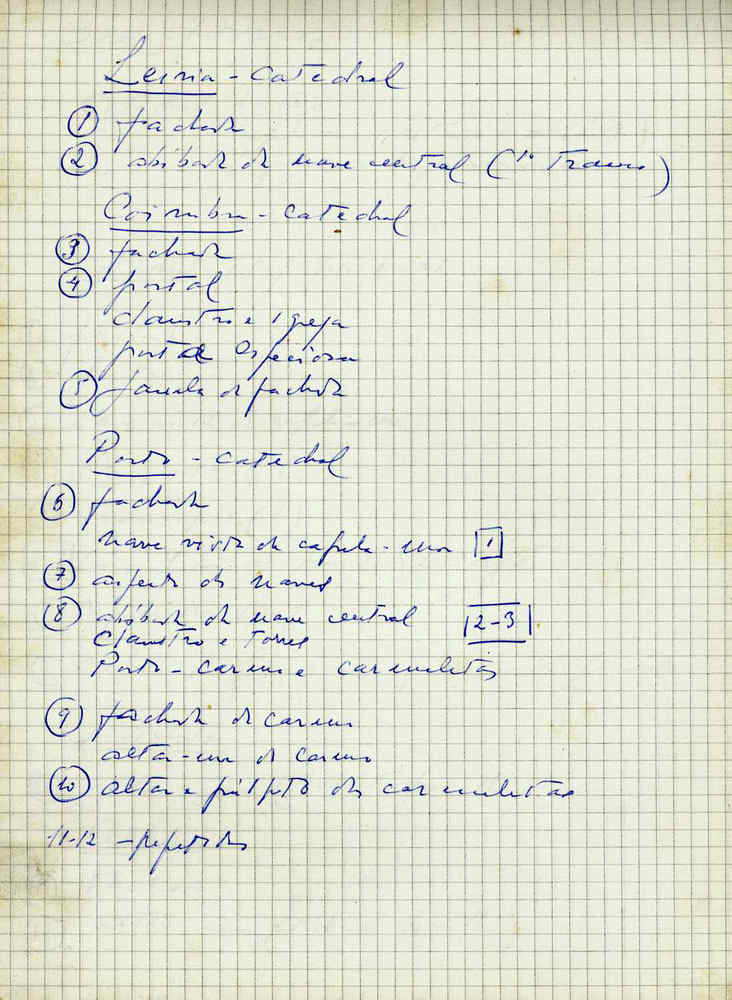 Leiria - catedral
① fachada
② abóbada da nave central (1º tramo)
Coimbra - catedral
③ fachada
④ portal
claustro e igreja
porta especiosa
⑤ janela da fachada
Porto - catedral
⑥ fachada
nave vista da capela-mor 1
⑦ aspecto das naves
⑧ abóbada da nave central 2-3
Claustro e torres
Porto - carmo e carmelitas
⑨ fachada do carmo
altar-mor do carmo
⑩ altar e púlpito das carmelitas
11-12 - repetidos